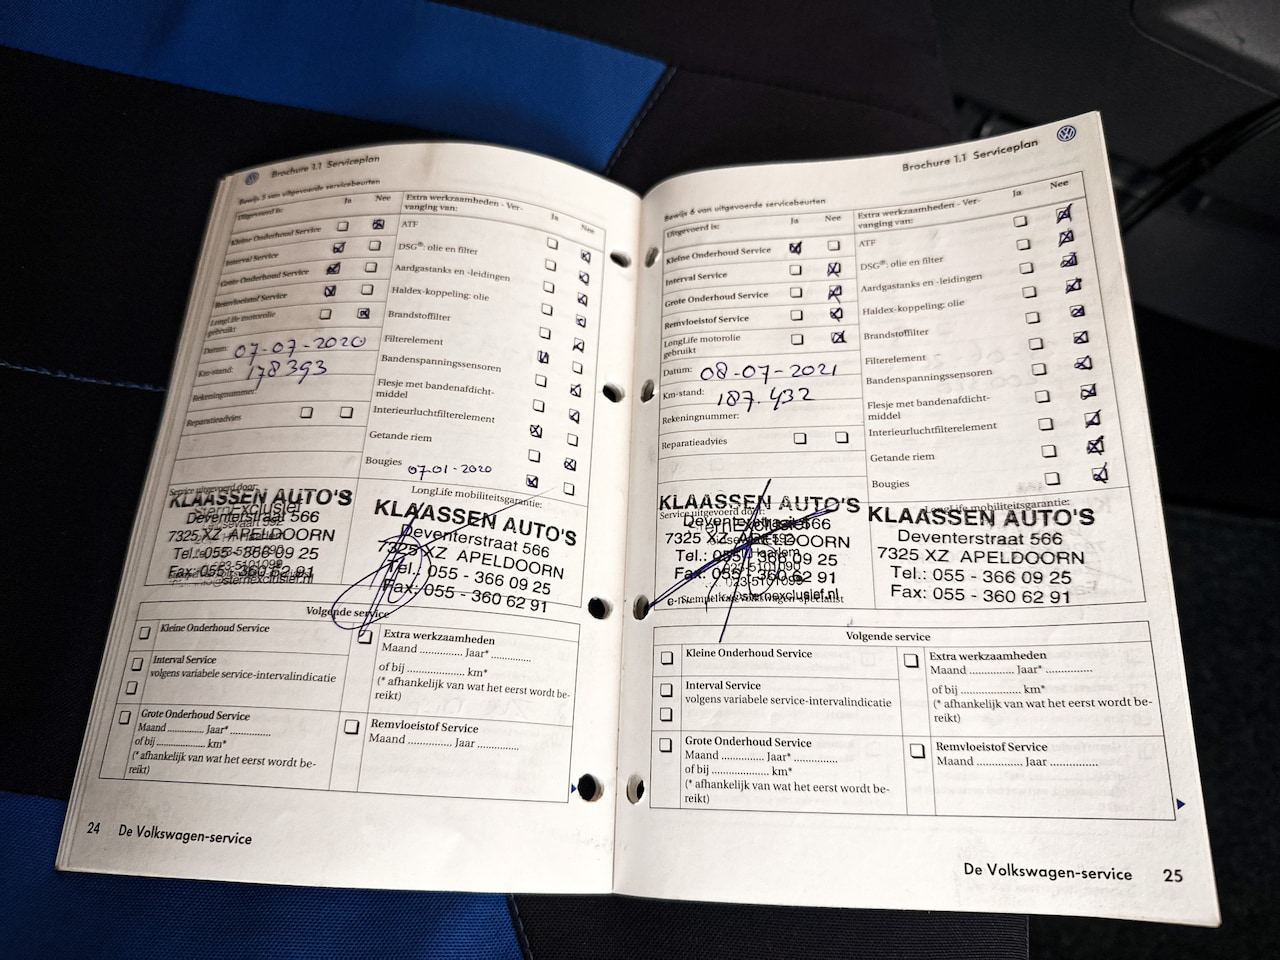 Brochure 1.1 Serviceplan
Bewijs 5 van uitgevoerde servicebeurten
Uitgevoerd is:
Ja
Nee
Kleine Onderhoud Service
Interval Service
Grote Onderhoud Service
Remvloeistof Service
LongLife motorolie
gebruikt
Datum: 07-07-2020
Km-stand: 178393
Rekeningnummer:
Reparatieadvies
Extra werkzaamheden - Ver-
vanging van:
Ja
Nee
ATF
DSG®: olie en filter
Aardgastanks en -leidingen
Haldex-koppeling: olie
Brandstoffilter
Filterelement
Bandenspanningssensoren
Flesje met bandenafdicht-
middel
Interieurluchtfilterelement
Getande riem
Bougies 07-01-2020
Service uitgevoerd door:
KLAASSEN AUTO'S
Deventerstraat 566
7325 XZ APELDOORN
Tel.: 055 - 366 09 25
Fax: 055 - 360 62 91
LongLife mobiliteitsgarantie:
KLAASSEN AUTO'S
Deventerstraat 566
7325 XZ APELDOORN
Tel.: 055 - 366 09 25
Fax: 055 - 360 62 91
Volgende service
Kleine Onderhoud Service
Interval Service
volgens variabele service-intervalindicatie
Grote Onderhoud Service
Maand ............. Jaar* ..............
of bij ..................... km*
(* afhankelijk van wat het eerst wordt be-
reikt)
Extra werkzaamheden
Maand ............. Jaar* .............
of bij ..................... km*
(* afhankelijk van wat het eerst wordt be-
reikt)
Remvloeistof Service
Maand ............. Jaar .............
24 De Volkswagen-service
Brochure 1.1 Serviceplan
Bewijs 6 van uitgevoerde servicebeurten
Uitgevoerd is:
Ja
Nee
Kleine Onderhoud Service
Interval Service
Grote Onderhoud Service
Remvloeistof Service
LongLife motorolie
gebruikt
Datum: 08-07-2021
Km-stand: 187.432
Rekeningnummer:
Reparatieadvies
Extra werkzaamheden - Ver-
vanging van:
Ja
Nee
ATF
DSG®: olie en filter
Aardgastanks en -leidingen
Haldex-koppeling: olie
Brandstoffilter
Filterelement
Bandenspanningssensoren
Flesje met bandenafdicht-
middel
Interieurluchtfilterelement
Getande riem
Bougies
Service uitgevoerd door:
KLAASSEN AUTO'S
Deventerstraat 566
7325 XZ APELDOORN
Tel.: 055 - 366 09 25
Fax: 055 - 360 62 91
LongLife mobiliteitsgarantie:
KLAASSEN AUTO'S
Deventerstraat 566
7325 XZ APELDOORN
Tel.: 055 - 366 09 25
Fax: 055 - 360 62 91
Volgende service
Kleine Onderhoud Service
Interval Service
volgens variabele service-intervalindicatie
Grote Onderhoud Service
Maand ............. Jaar* ..............
of bij .................... km*
(* afhankelijk van wat het eerst wordt be-
reikt)
Extra werkzaamheden
Maand ............. Jaar* ..............
of bij ..................... km*
(* afhankelijk van wat het eerst wordt be-
reikt)
Remvloeistof Service
Maand .............. Jaar ..............
De Volkswagen-service 25